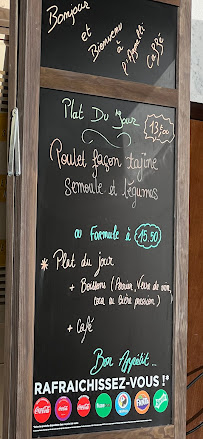 Bonjour
et
Bienvenu
à
Café
Plat Du Jour
13,00
Poulet façon tajine
Semoule et légumes
ou Formule à 15.50
* Plat du jour
+ Boissons (Perrier, Verre de vin,
coca ou bière pression)
+ Café
Bon Appétit...
RAFRAICHISSEZ-VOUS !*
Coca-Cola
Coca-Cola
Coca-Cola